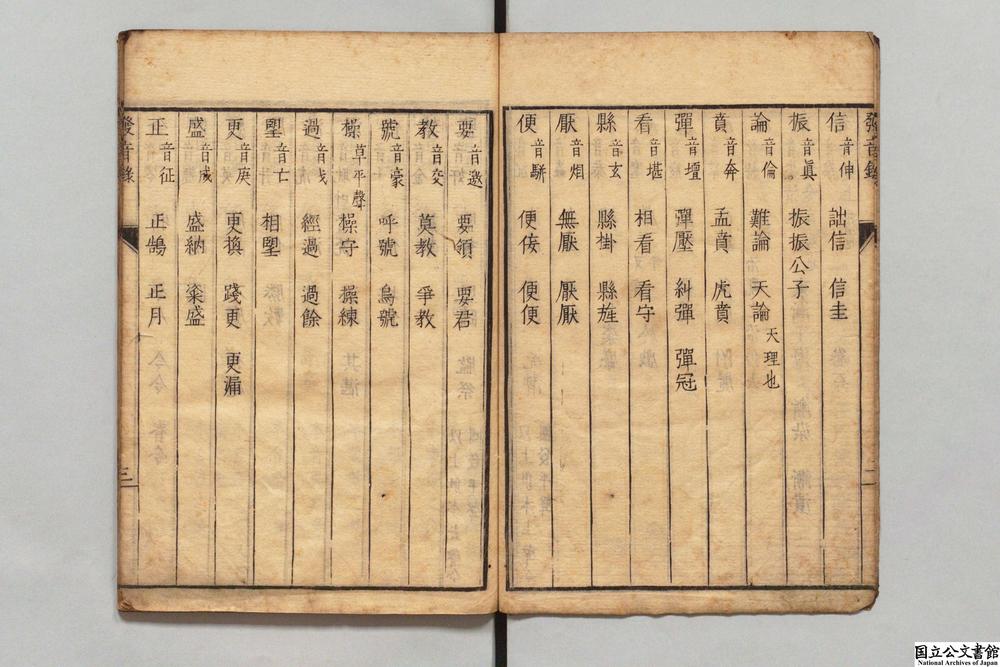 發音錄
二
信 音伸 詘信 信圭
振 音眞 振振公子
論 音倫 難論 天論 天理也
賁 音奔 孟賁 虎賁
彈 音壇 彈壓 糾彈 彈冠
看 音堪 相看 看守
縣 音玄 縣掛 縣旌
厭 音烟 無厭 厭厭
便 音駢 便佞 便便
要 音邀 要領 要君
教 音交 莫教 爭教
號 音豪 呼號 烏號
操 草平聲 操守 操練
過 音戈 經過 過餘
朢 音亡 相朢
更 音庚 更換 踐更 更漏
盛 音成 盛納 粢盛
正 音征 正鵠 正月
發音錄
三
国立公文書館
National Archives of Japan